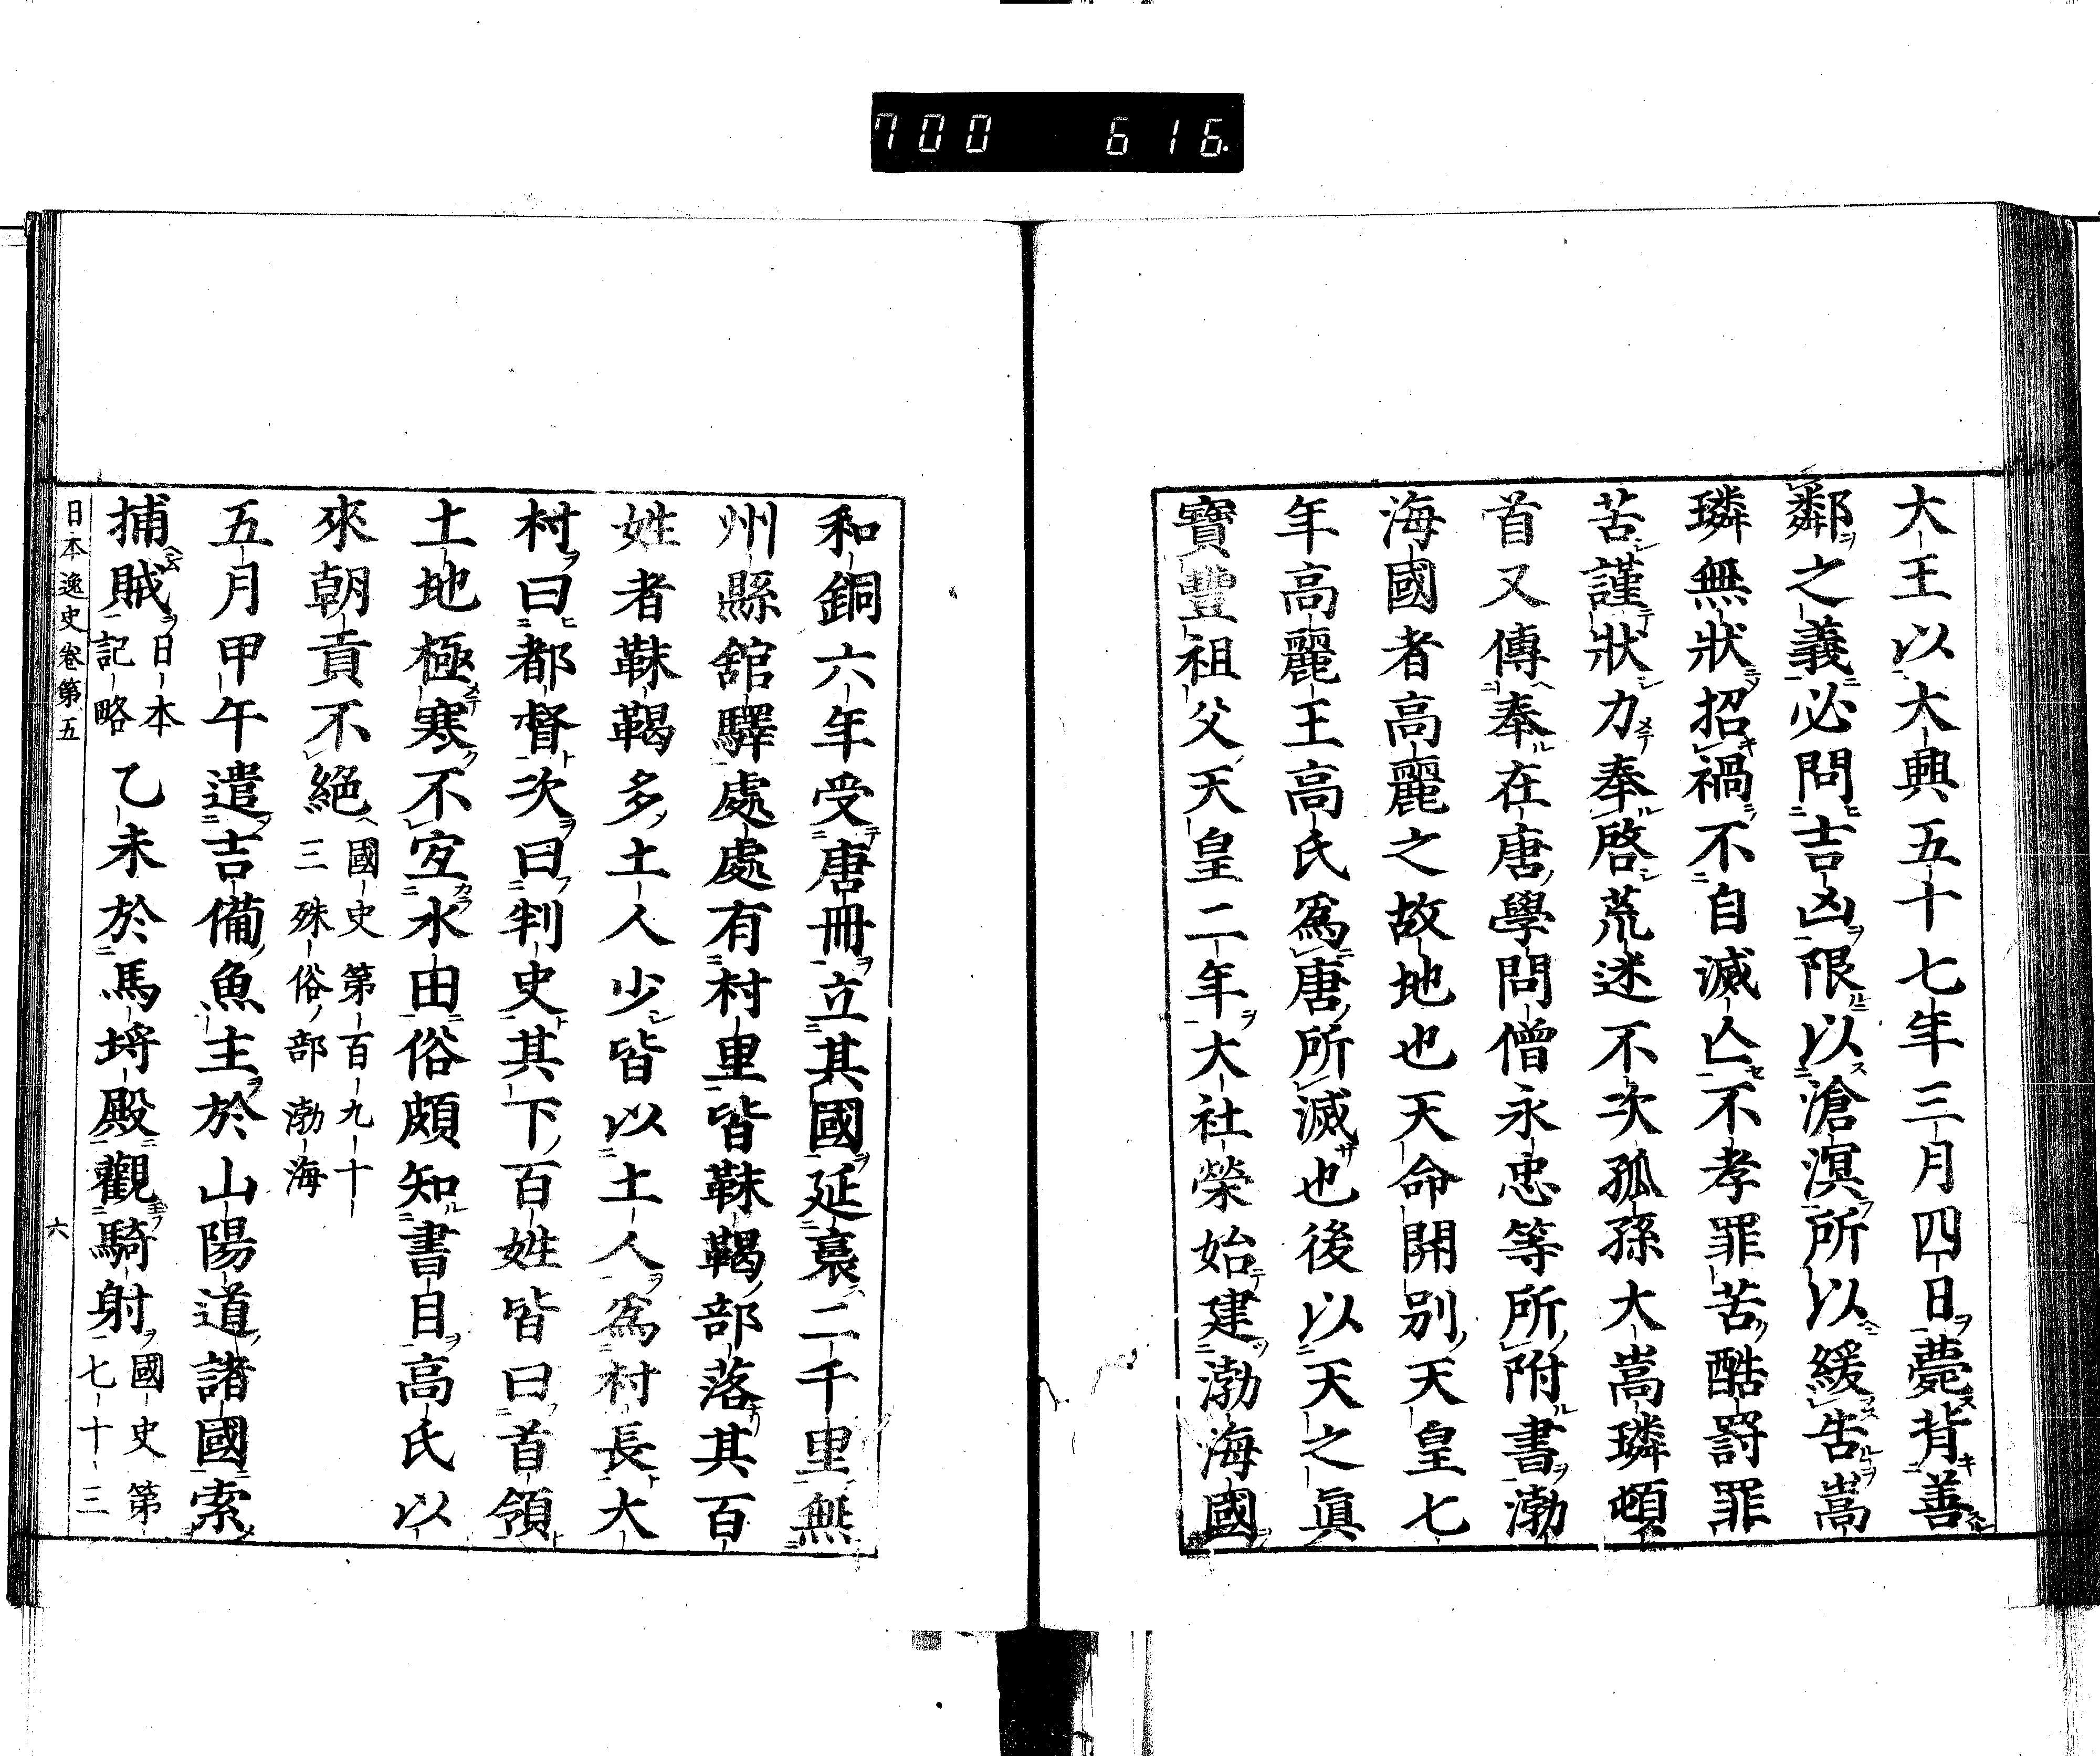 700 616
大王以大興五十七年三月四日薨背善
鄰之義必問吉凶限以滄溟所以緩告嵩
璘無狀招禍不自滅亡不孝罪苦酷罸罪
苦謹狀力奉啓荒迷不次孤孫大嵩璘頓
首又傳奉在唐學問僧永忠等所附書渤
海國者高麗之故地也天命開別天皇七
年高麗王高氏爲唐所滅也後以天之眞
寶豐祖父天皇二年大社榮始建渤海國
和銅六年受唐冊立其國延袤二千里無
州縣舘驛處處有村里皆靺鞨部落其百
姓者靺鞨多土人少皆以土人爲村長大
村曰都督次曰判史其下百姓皆曰首領
土地極寒不宜水田俗頗知書自高氏以
來朝貢不絕國史第百九十三殊俗部渤海
五月甲午遣吉備魚主於山陽道諸國索
捕賊日本記略乙未於馬埒殿觀騎射國史第七十三
日本逸史卷第五 六